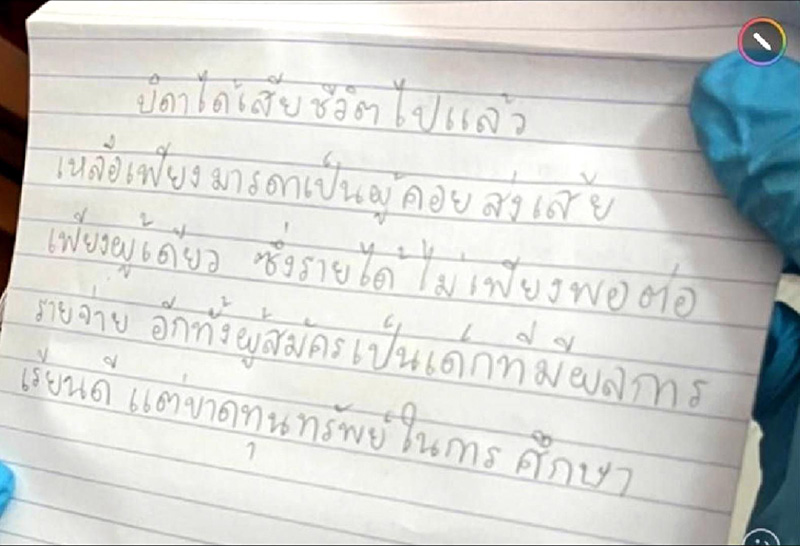 บิดาได้เสียชีวิตไปแล้ว
เหลือเพียงมารดาเป็นผู้คอยส่งเสีย
เพียงผู้เดียว ซึ่งรายได้ไม่เพียงพอต่อ
รายจ่าย อีกทั้งผู้สมัครเป็นเด็กที่มีผลการ
เรียนดี แต่ขาดทุนทรัพย์ในการศึกษา